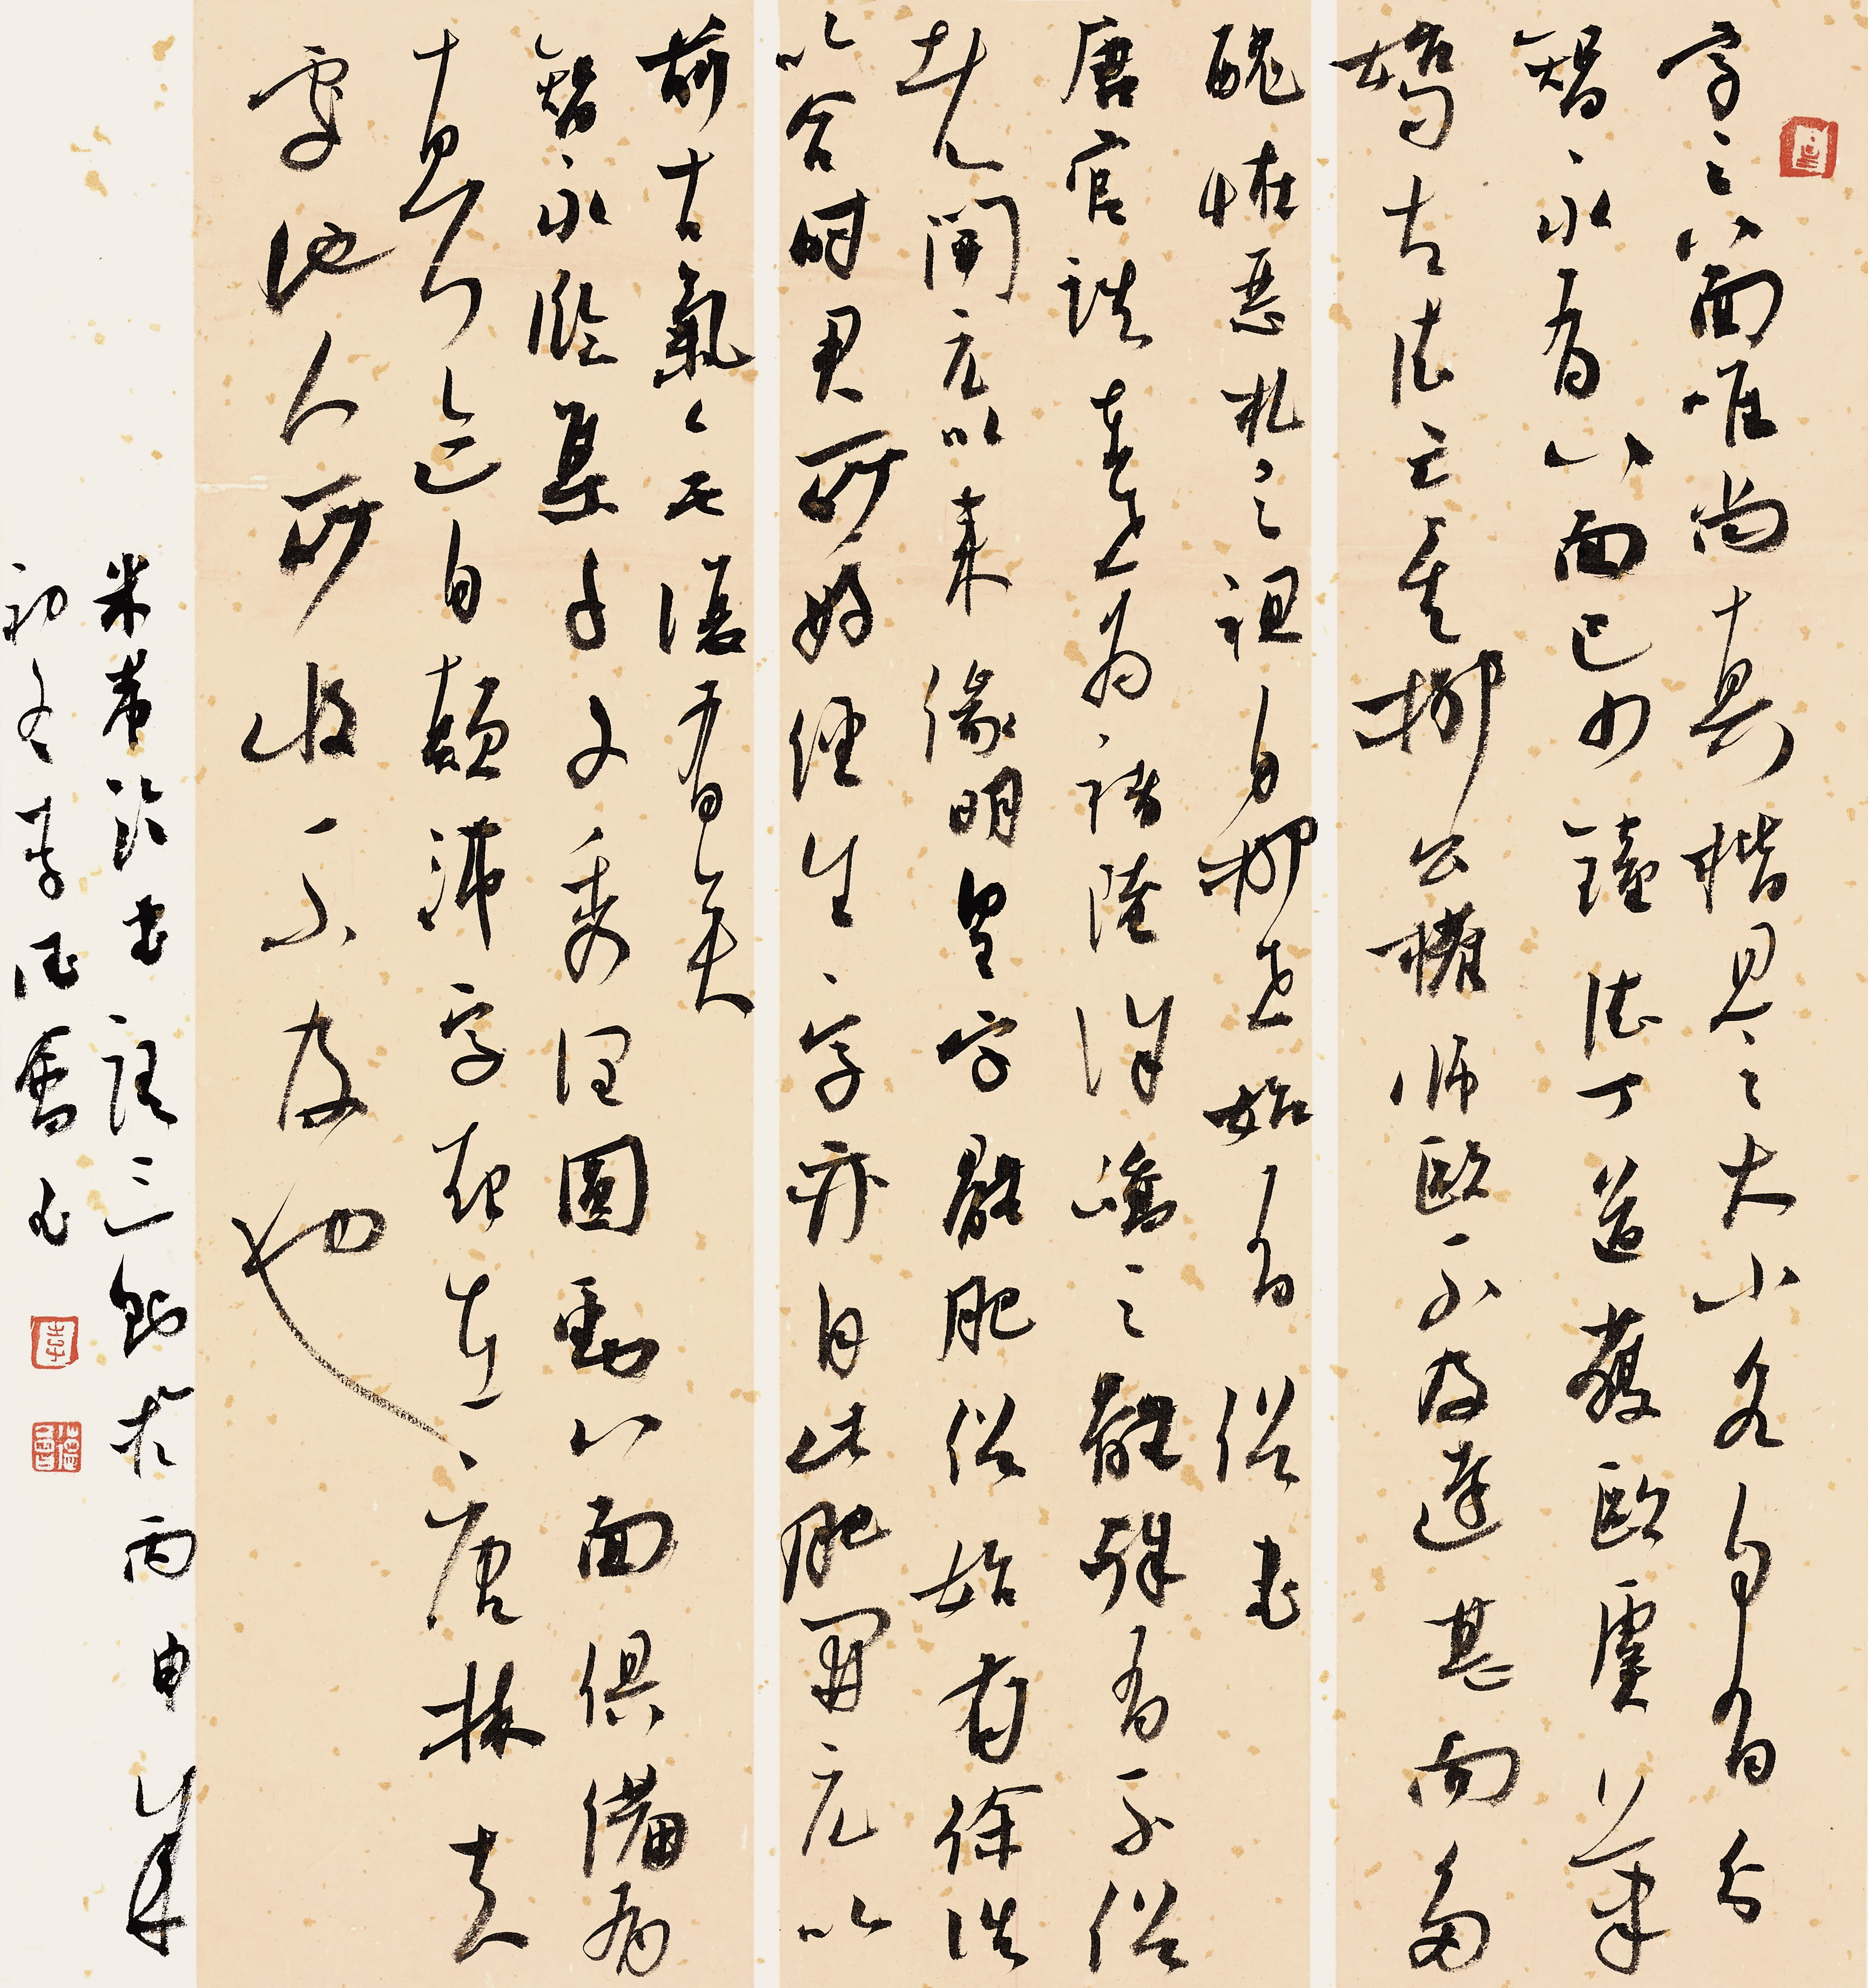 字之八面唯尚真楷見之大小各自有分
智永有八面已少鍾法丁道護歐虞筆
始勻古法亡矣柳公權師歐不及遠甚而為
醜怪惡札之祖自柳世始有俗書
唐官誥在世為褚陸徐嶠之體殊有不俗
者開元以來緣明皇字體肥俗始有徐浩
以合時君所好經生字亦自此肥開元以
前古氣無復有矣
智永臨集千文秀潤圓勁八面俱備有
真跡自顛沛字起在唐林夫
處他人所收不及也
米芾論書語三則於丙申年
初冬李